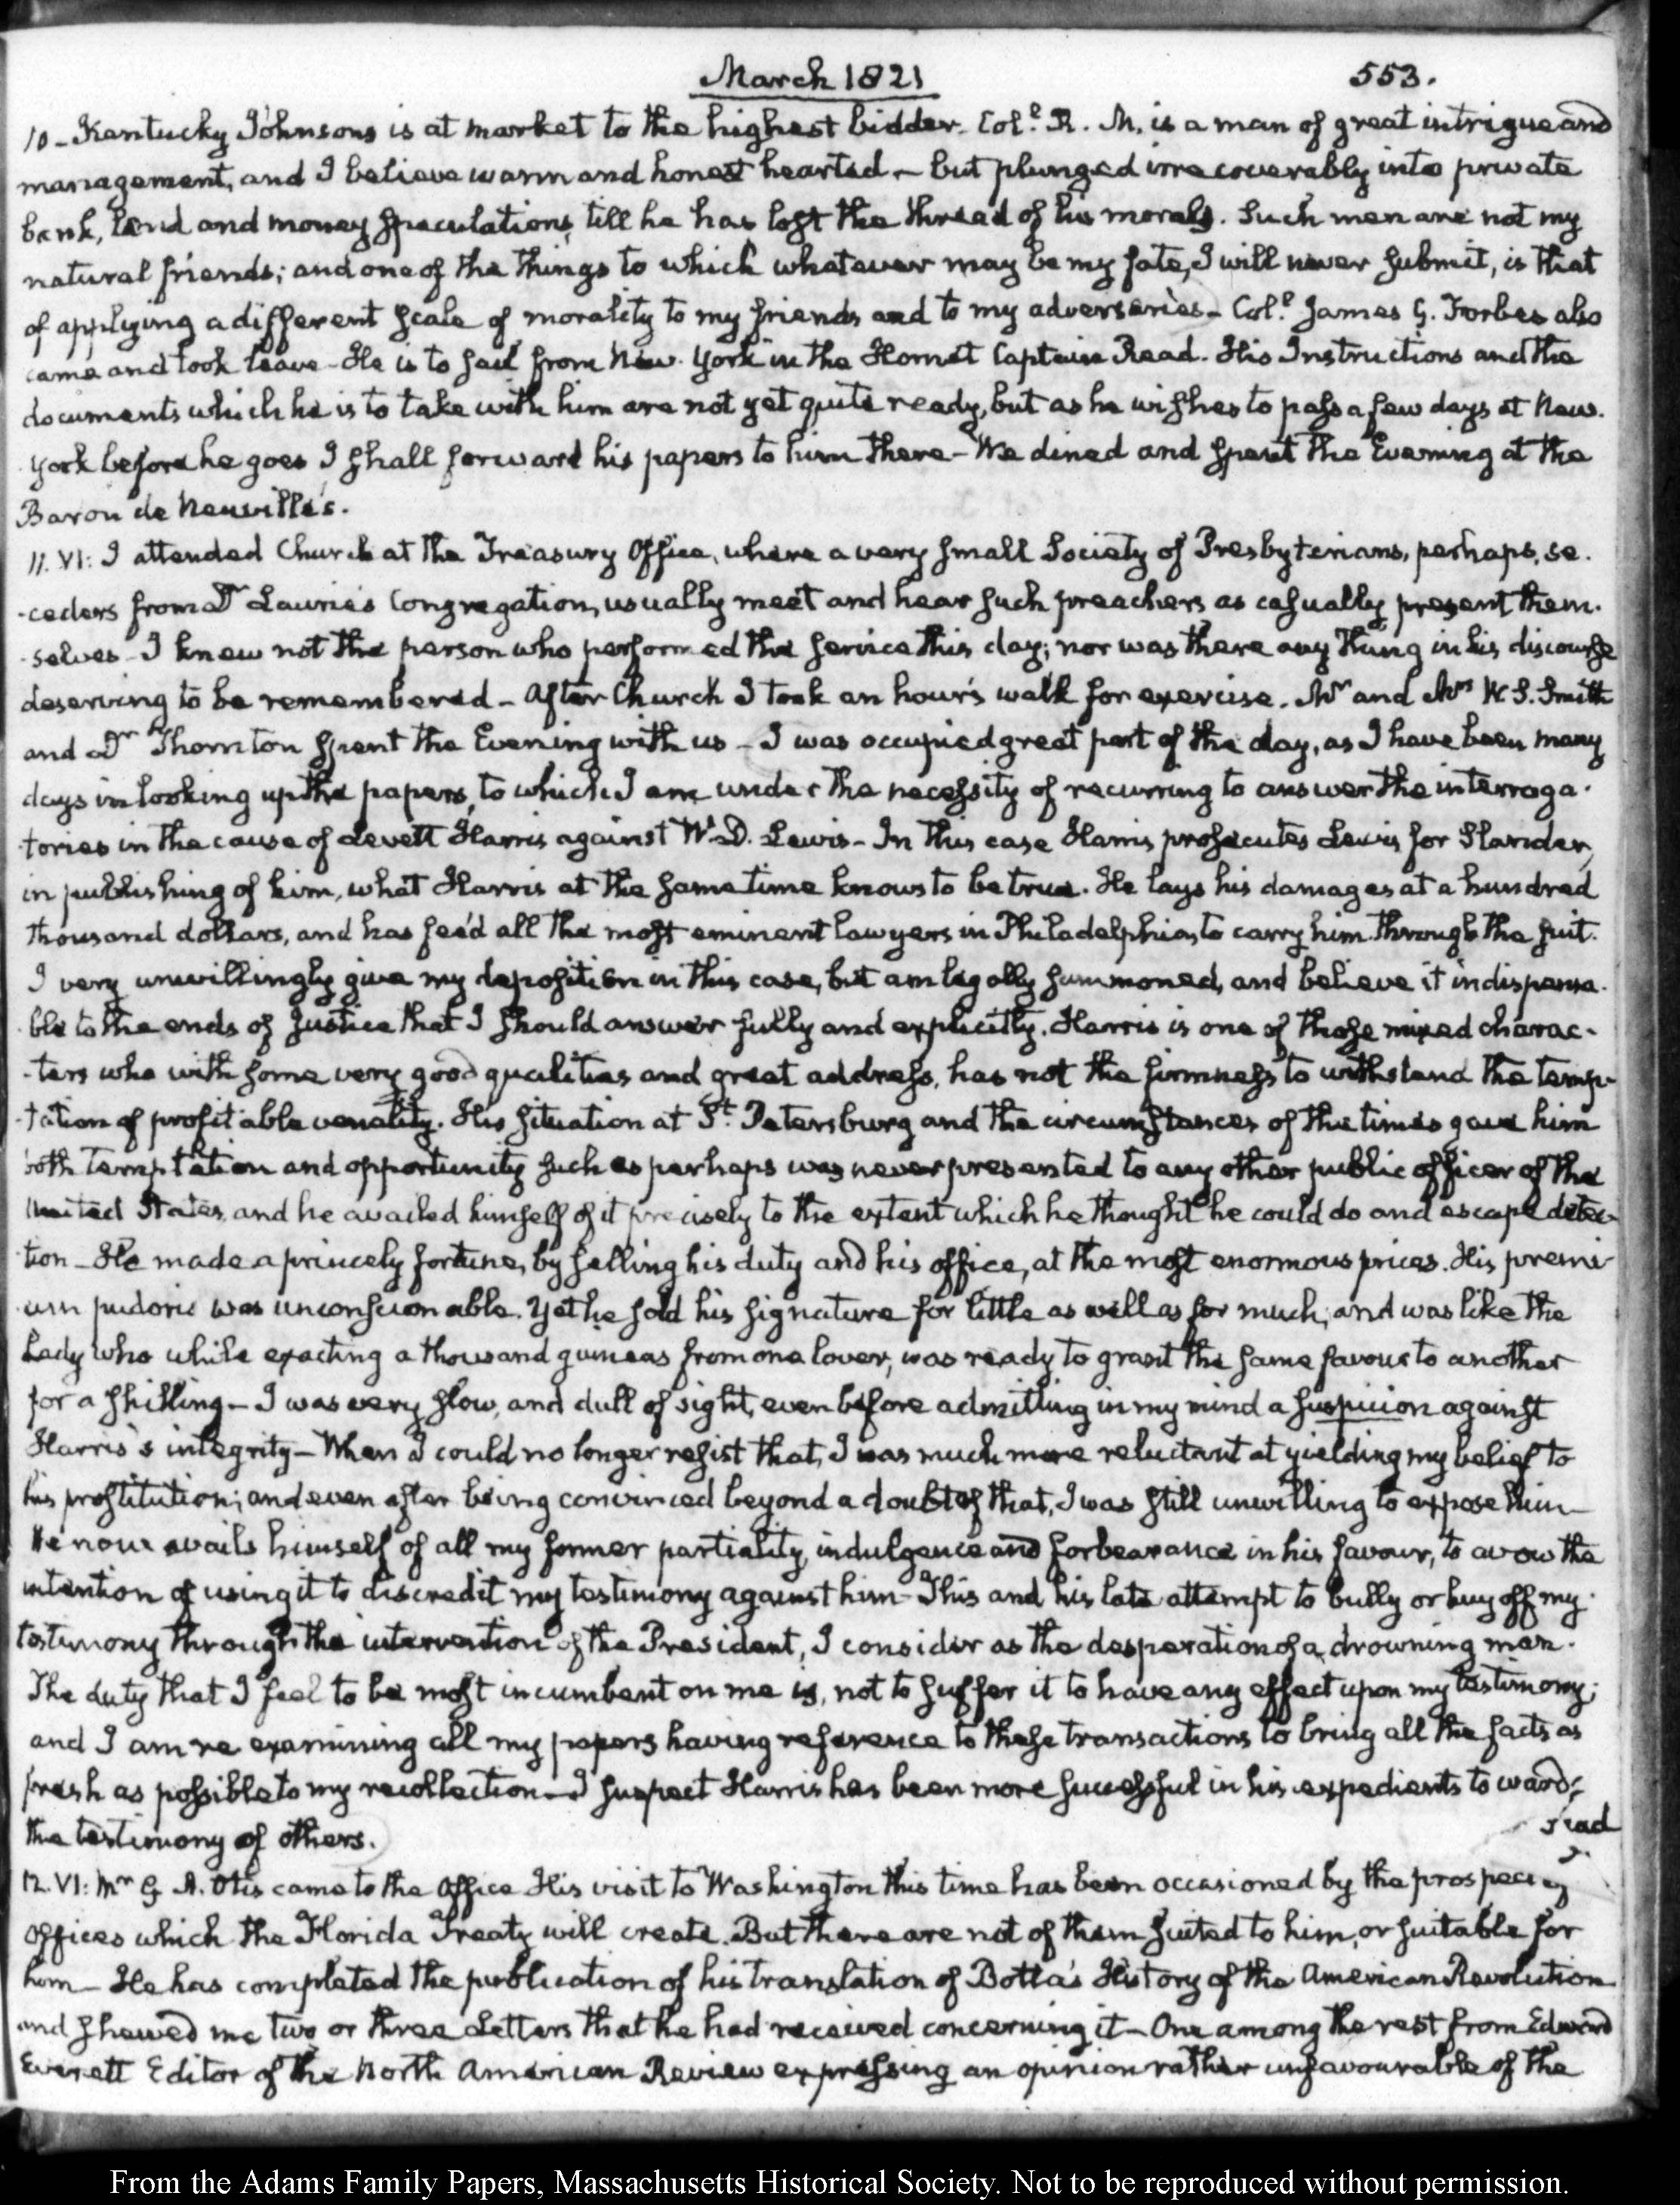 March 1821
553.
10 - Kentucky Johnsons is at market to the highest bidder. Col.l R. M. is a man of great intrigue and
management, and I believe warm and honest hearted - but plunged irrecoverably into private
bank, land and money speculations, till he has lost the thread of his morals. Such men are not my
natural friends; and one of the things to which whatever may be my fate, I will never submit, is that
of applying a different scale of morality to my friends and to my adversaries - Col.l James G. Forbes also
came and took leave - He is to sail from New-York in the Hornet Captain Read. His Instructions and the
documents which he is to take with him are not yet quite ready, but as he wishes to pass a few days at New-
York before he goes I shall forward his papers to him there - We dined and spent the Evening at the
Baron de Neuville's.
11. VI: I attended Church at the Treasury Office, where a very small Society of Presbyterians, perhaps, se-
-ceders from Dr Laurie's Congregation, usually meet and hear such preachers as casually present them-
-selves - I knew not the person who performed the service this day; nor was there any thing in his discourse
deserving to be remembered - After Church I took an hour's walk for exercise. Mr and Mrs W. S. Smith
and Dr Thornton spent the Evening with us - I was occupied great part of the day, as I have been many
days in looking up the papers, to which I am under the necessity of recurring to answer the interroga-
-tories in the cause of Levett Harris against W. D. Lewis - In this case Harris prosecutes Lewis for Slander,
in publishing of him, what Harris at the same time knows to be true. He lays his damages at a hundred
thousand dollars, and has fee'd all the most eminent lawyers in Philadelphia, to carry him through the suit.
I very unwillingly give my deposition in this case, but am legally summoned, and believe it indispensa-
-ble to the ends of Justice that I should answer fully and explicitly. Harris is one of those mixed charac-
-ters who with some very good qualities and great address, has not the firmness to withstand the temp-
-tation of profitable venality. His situation at St. Petersburg and the circumstances of the times gave him
both temptation and opportunity such as perhaps was never presented to any other public officer of the
United States, and he availed himself of it precisely to the extent which he thought he could do and escape detec-
-tion - He made a princely fortune, by selling his duty and his office, at the most enormous prices. His premi-
-um pudoris was unconscionable. Yet he sold his signature for little as well as for much, and was like the
Lady who while exacting a thousand guineas from one lover, was ready to grant the same favour to another
for a shilling - I was very slow, and dull of sight, even before admitting in my mind a suspicion against
Harris's integrity - When I could no longer resist that, I was much more reluctant at yielding my belief to
his prostitution; and even after being convinced beyond a doubt of that, I was still unwilling to expose him -
He now avails himself of all my former partiality, indulgence and forbearance in his favour, to avow the
intention of using it to discredit my testimony against him - This and his late attempt to bully or buy off my
testimony through the intervention of the President, I consider as the desperation of a drowning man.
The duty that I feel to be most incumbent on me is, not to suffer it to have any effect upon my testimony;
and I am re examining all my papers having reference to these transactions to bring all the facts as
fresh as possible to my recollection - I suspect Harris has been more successful in his expedients to ward
the testimony of others.
12. VI: Mr G. A. Otis came to the Office His visit to Washington this time has been occasioned by the prospect of
Offices which the Florida Treaty will create. But there are not of them suited to him, or suitable for
him - He has completed the publication of his translation of Botta's History of the American Revolution
and shewed me two or three Letters that he had received concerning it - One among the rest from Edward
Everett Editor of the North American Review expressing an opinion rather unfavourable of the
From the Adams Family Papers, Massachusetts Historical Society. Not to be reproduced without permission.